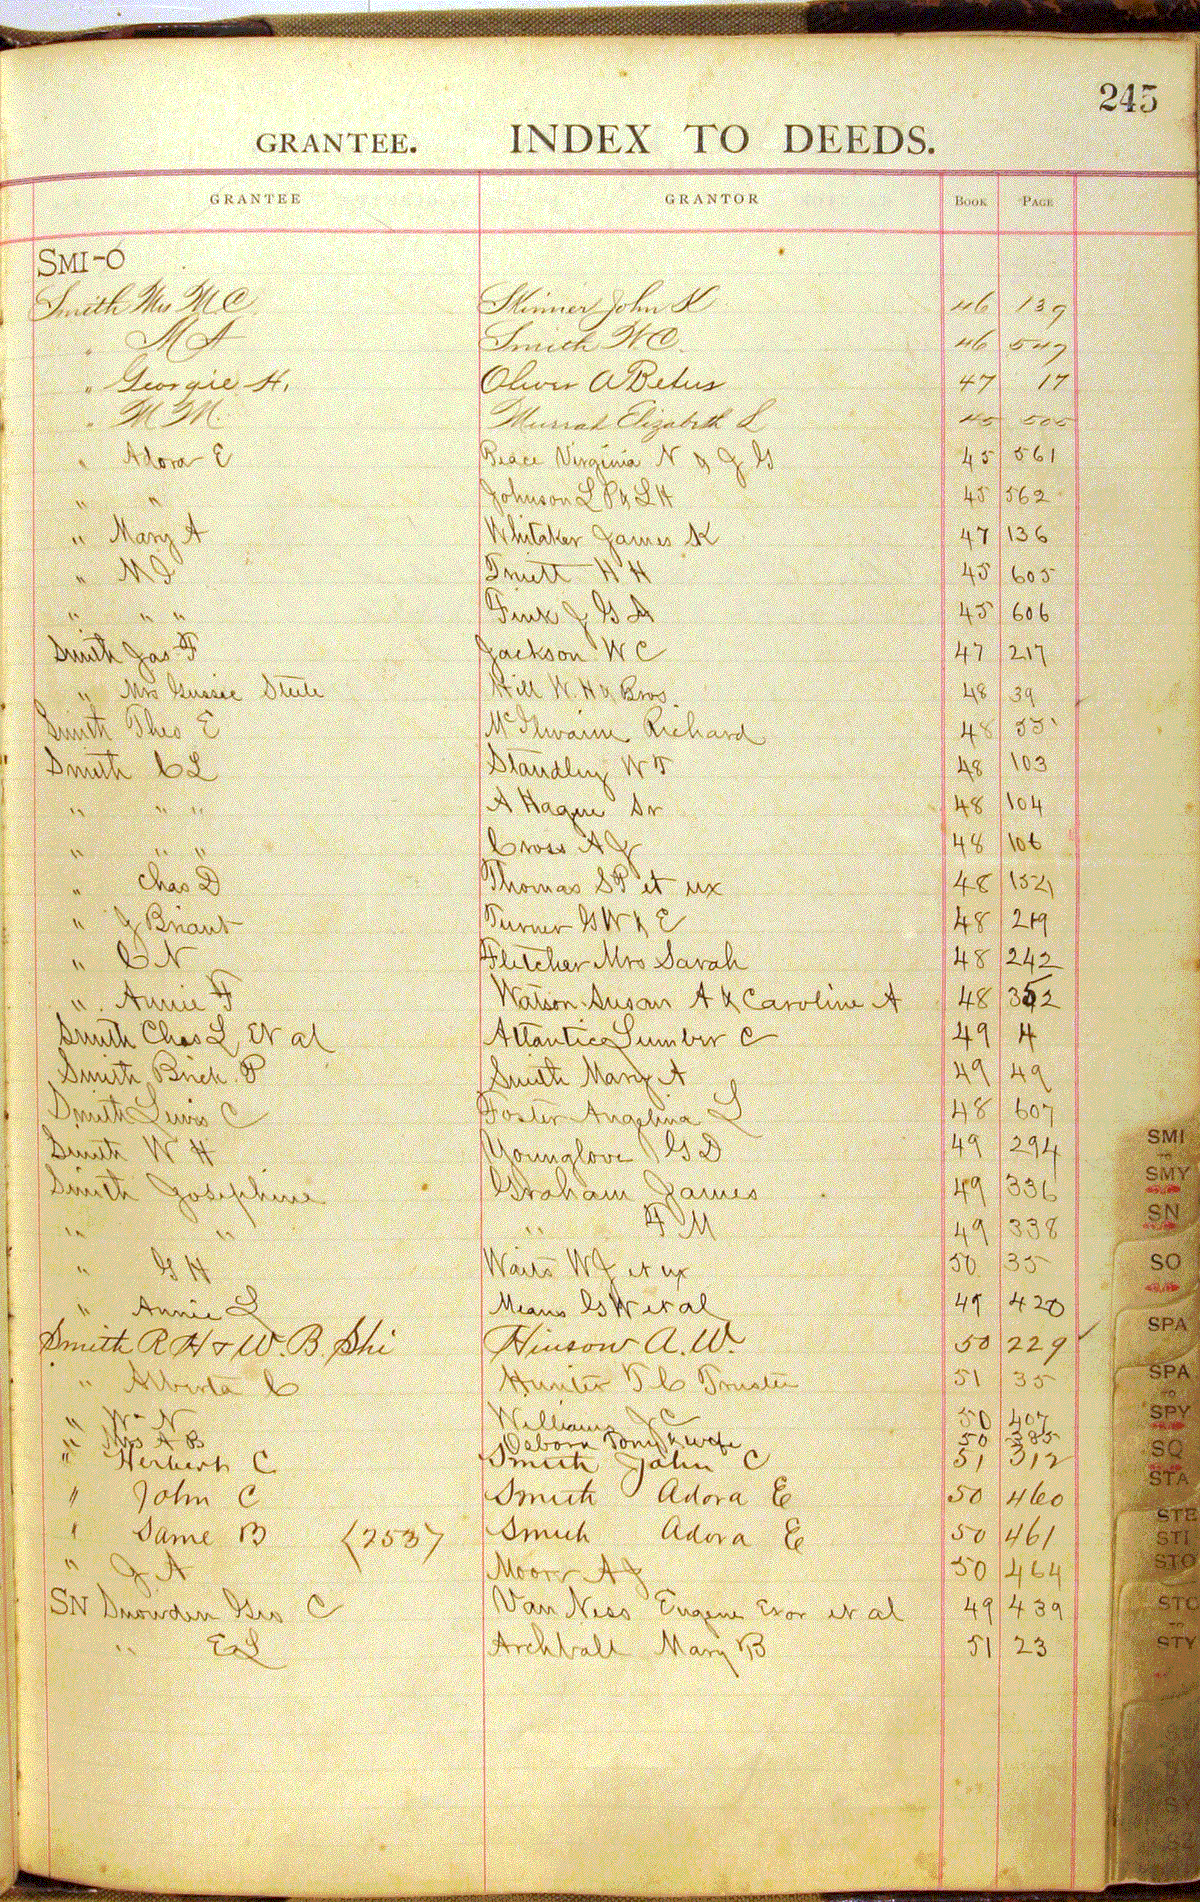 245
GRANTEE. INDEX TO DEEDS.
GRANTEE GRANTOR BOOK PAGE
SMI-O
Smith Mrs M C Skinner John K 46 139
" M A Smith W C. 46 547
" Georgie H. Oliver A 47 17
" M M. Murrah Elizabeth L 45 505
" Adora E Peace Virginia N & J G 45 561
" " Johnson L P & L H 45 562
" Mary A Whitaker James K 47 136
" M J H H 45 605
" " " Fink J G A 45 606
Smith Jas F Jackson W C 47 217
" Mrs Gussie Hill W H & Bros 48 39
Smith Theo E McIlwaine Richard 48 55
Smith C L Standley W T 48 103
" " " A Hague Sr 48 104
" " " Cross A J 48 106
" Chas D Thomas S P et ux 48 152
" J Briant Turner G W & E 48 219
" C N Fletcher Mrs Sarah 48 242
" Annie F Watson Susan A & Caroline A 48 352
Smith Chas L, Et al Atlantic Lumber C 49 4
Smith Brick P Smith Mary A 49 49
Smith Lewis C Foster Angelina L 48 607
Smith W H Younglove G D 49 294
Smith Josephine Graham James 49 336
" " " F M 49 338
" G H Waits W J et ux 50 35
" Annie L Means G W et al 49 420
Smith R H & W. B. Shi Hinson A. W. 50 229
" Alberta C Hunter T C Trustee 51 35
" W N Williams J C 50 407
" Mrs A B Osborn Tony & wife 50 385
" Herbert C Smith John C 51 312
" John C Smith Adora E 50 460
" Same B (253) Smith Adora E 50 461
" J A Moore A J 50 464
SN Snowden Geo C Van Ness Eugene Exor et al 49 439
" E L Archball Mary B 51 23
SMI
TO
SMY
SN
SO
SPA
SPA
TO
SPY
SQ
STA
STE
STI
STO
STO
TO
STY